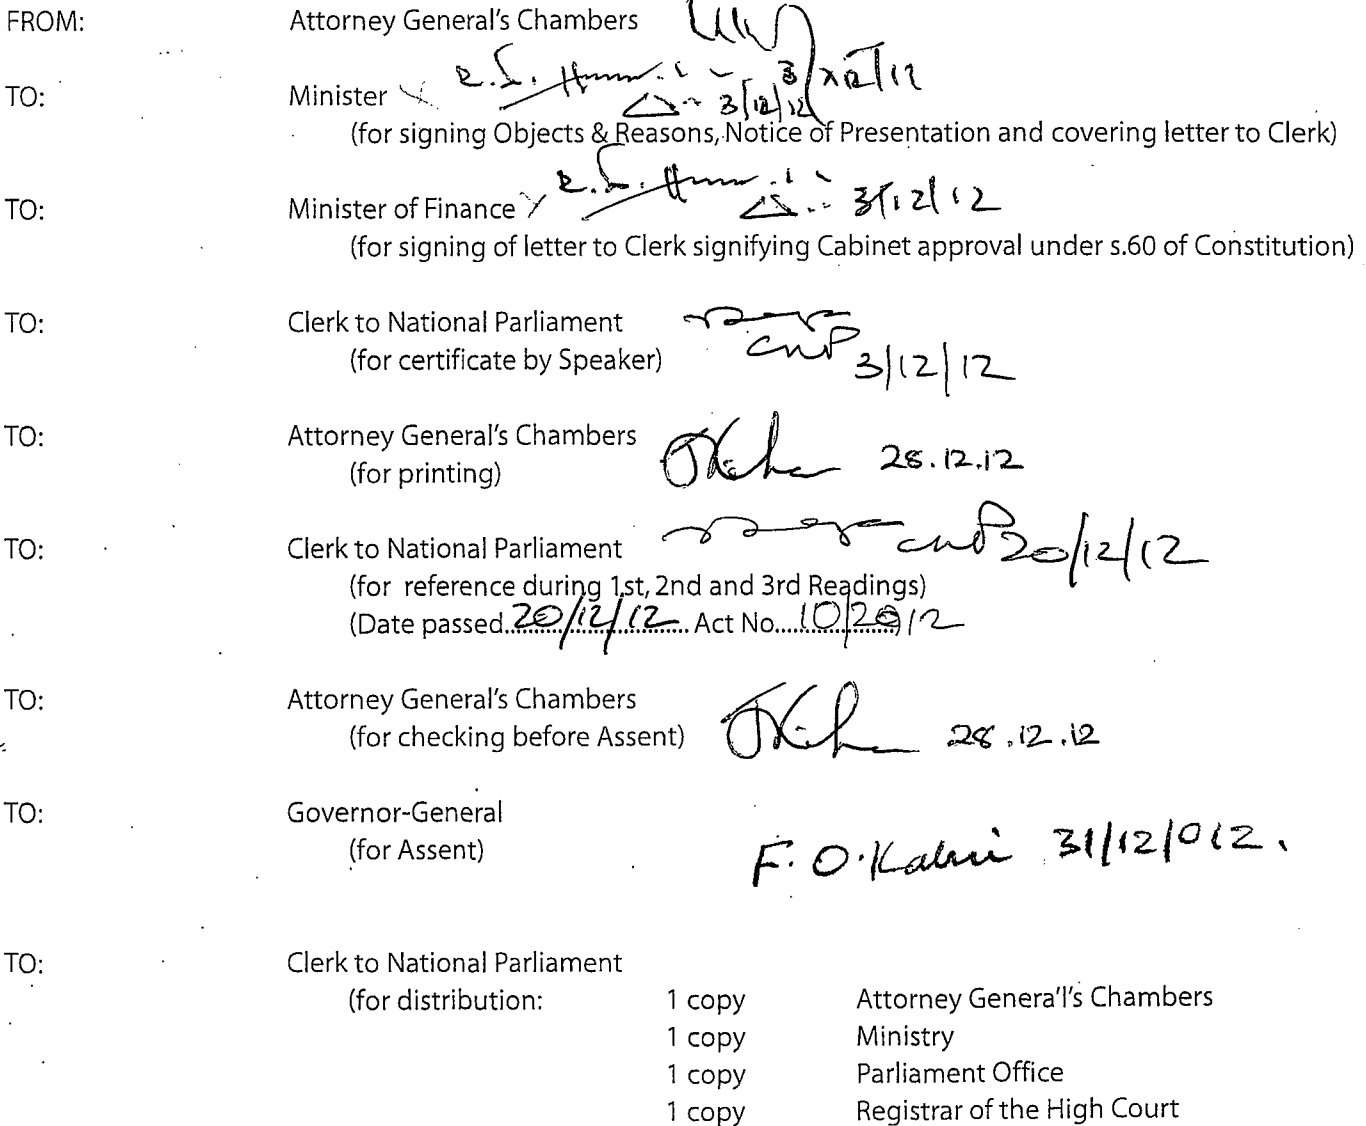 FROM: Attorney General's Chambers
3/12/12
TO: Minister
3/12/12
(for signing Objects & Reasons, Notice of Presentation and covering letter to Clerk)
TO: Minister of Finance 3/12/12
(for signing of letter to Clerk signifying Cabinet approval under s.60 of Constitution)
TO: Clerk to National Parliament
(for certificate by Speaker) CNP 3/12/12
TO: Attorney General's Chambers 28.12.12
(for printing)
TO: Clerk to National Parliament CNP 20/12/12
(for reference during 1st, 2nd and 3rd Readings)
(Date passed 20/12/12 Act No. 10/2012
TO: Attorney General's Chambers
(for checking before Assent) 28.12.12
TO: Governor-General
(for Assent) F. O. Kabui 31/12/012.
TO: Clerk to National Parliament
(for distribution: 1 copy Attorney Genera'l's Chambers
1 copy Ministry
1 copy Parliament Office
1 copy Registrar of the High Court